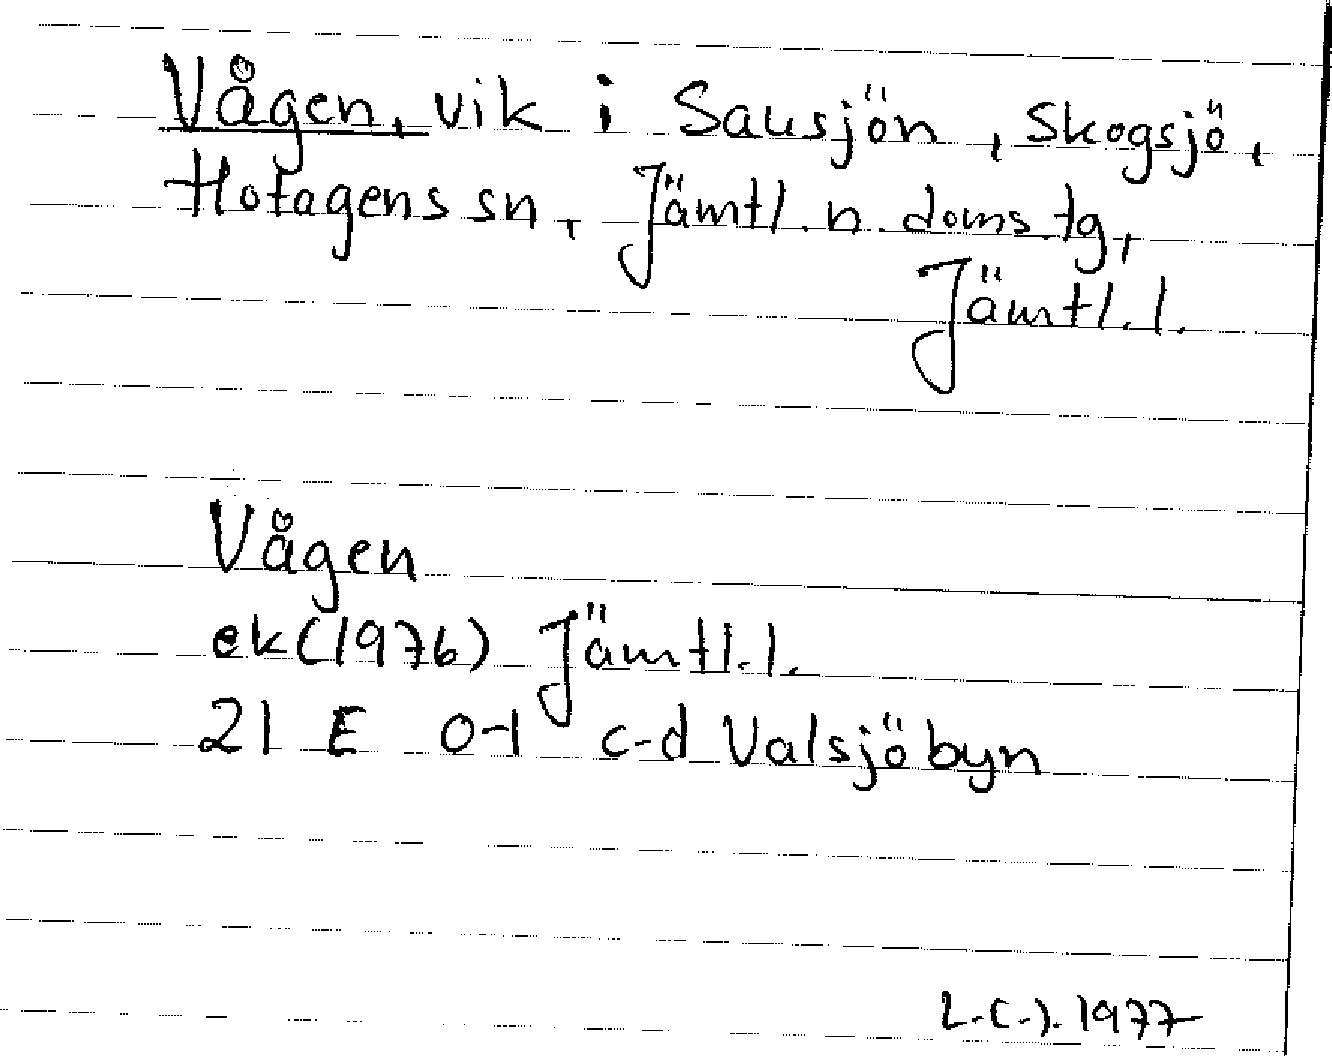 Vågen, vik i Sausjön, Skogsjö,
Hotagens sn, Jämtl. n. doms.tg,
Jämtl.l.
Vågen
ek(1976) Jämtl.l.
21 E 0-1 c-d Valsjöbyn
1977